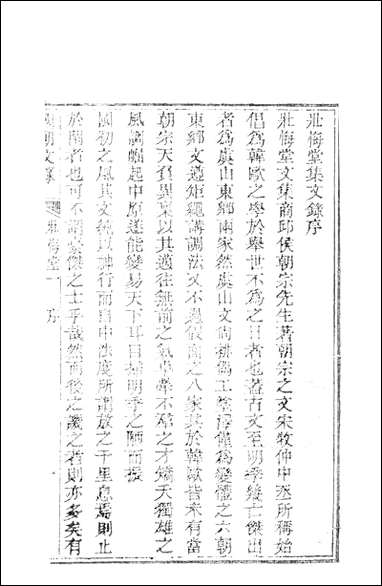 壯悔堂集文錄序
壯悔堂文集商邱侯朝宗先生著朝宗之文宋牧仲中丞所稱始
倡為韓歐之學於舉世不為之日者也蓋古文至明季幾亡傑出
者為虞山東鄉兩家然虞山文尚排偶工塗澤僅為變體之六朝
東鄉文遵矩矱講調法又不過假面之八家其於韓歐皆未有當
朝宗天負異稟以其邁往無前之氣卓犖不羈之才矯天獨雄之
風調崛起中原遂能變易天下耳目掃明季之陋而振
國初之風其文純以神行而自中法度所謂放之千里息焉則止
於閑者也可不謂豪傑之士乎哉然而後之譏之者則亦多矣有
國朝文錄 壯悔堂 序 一